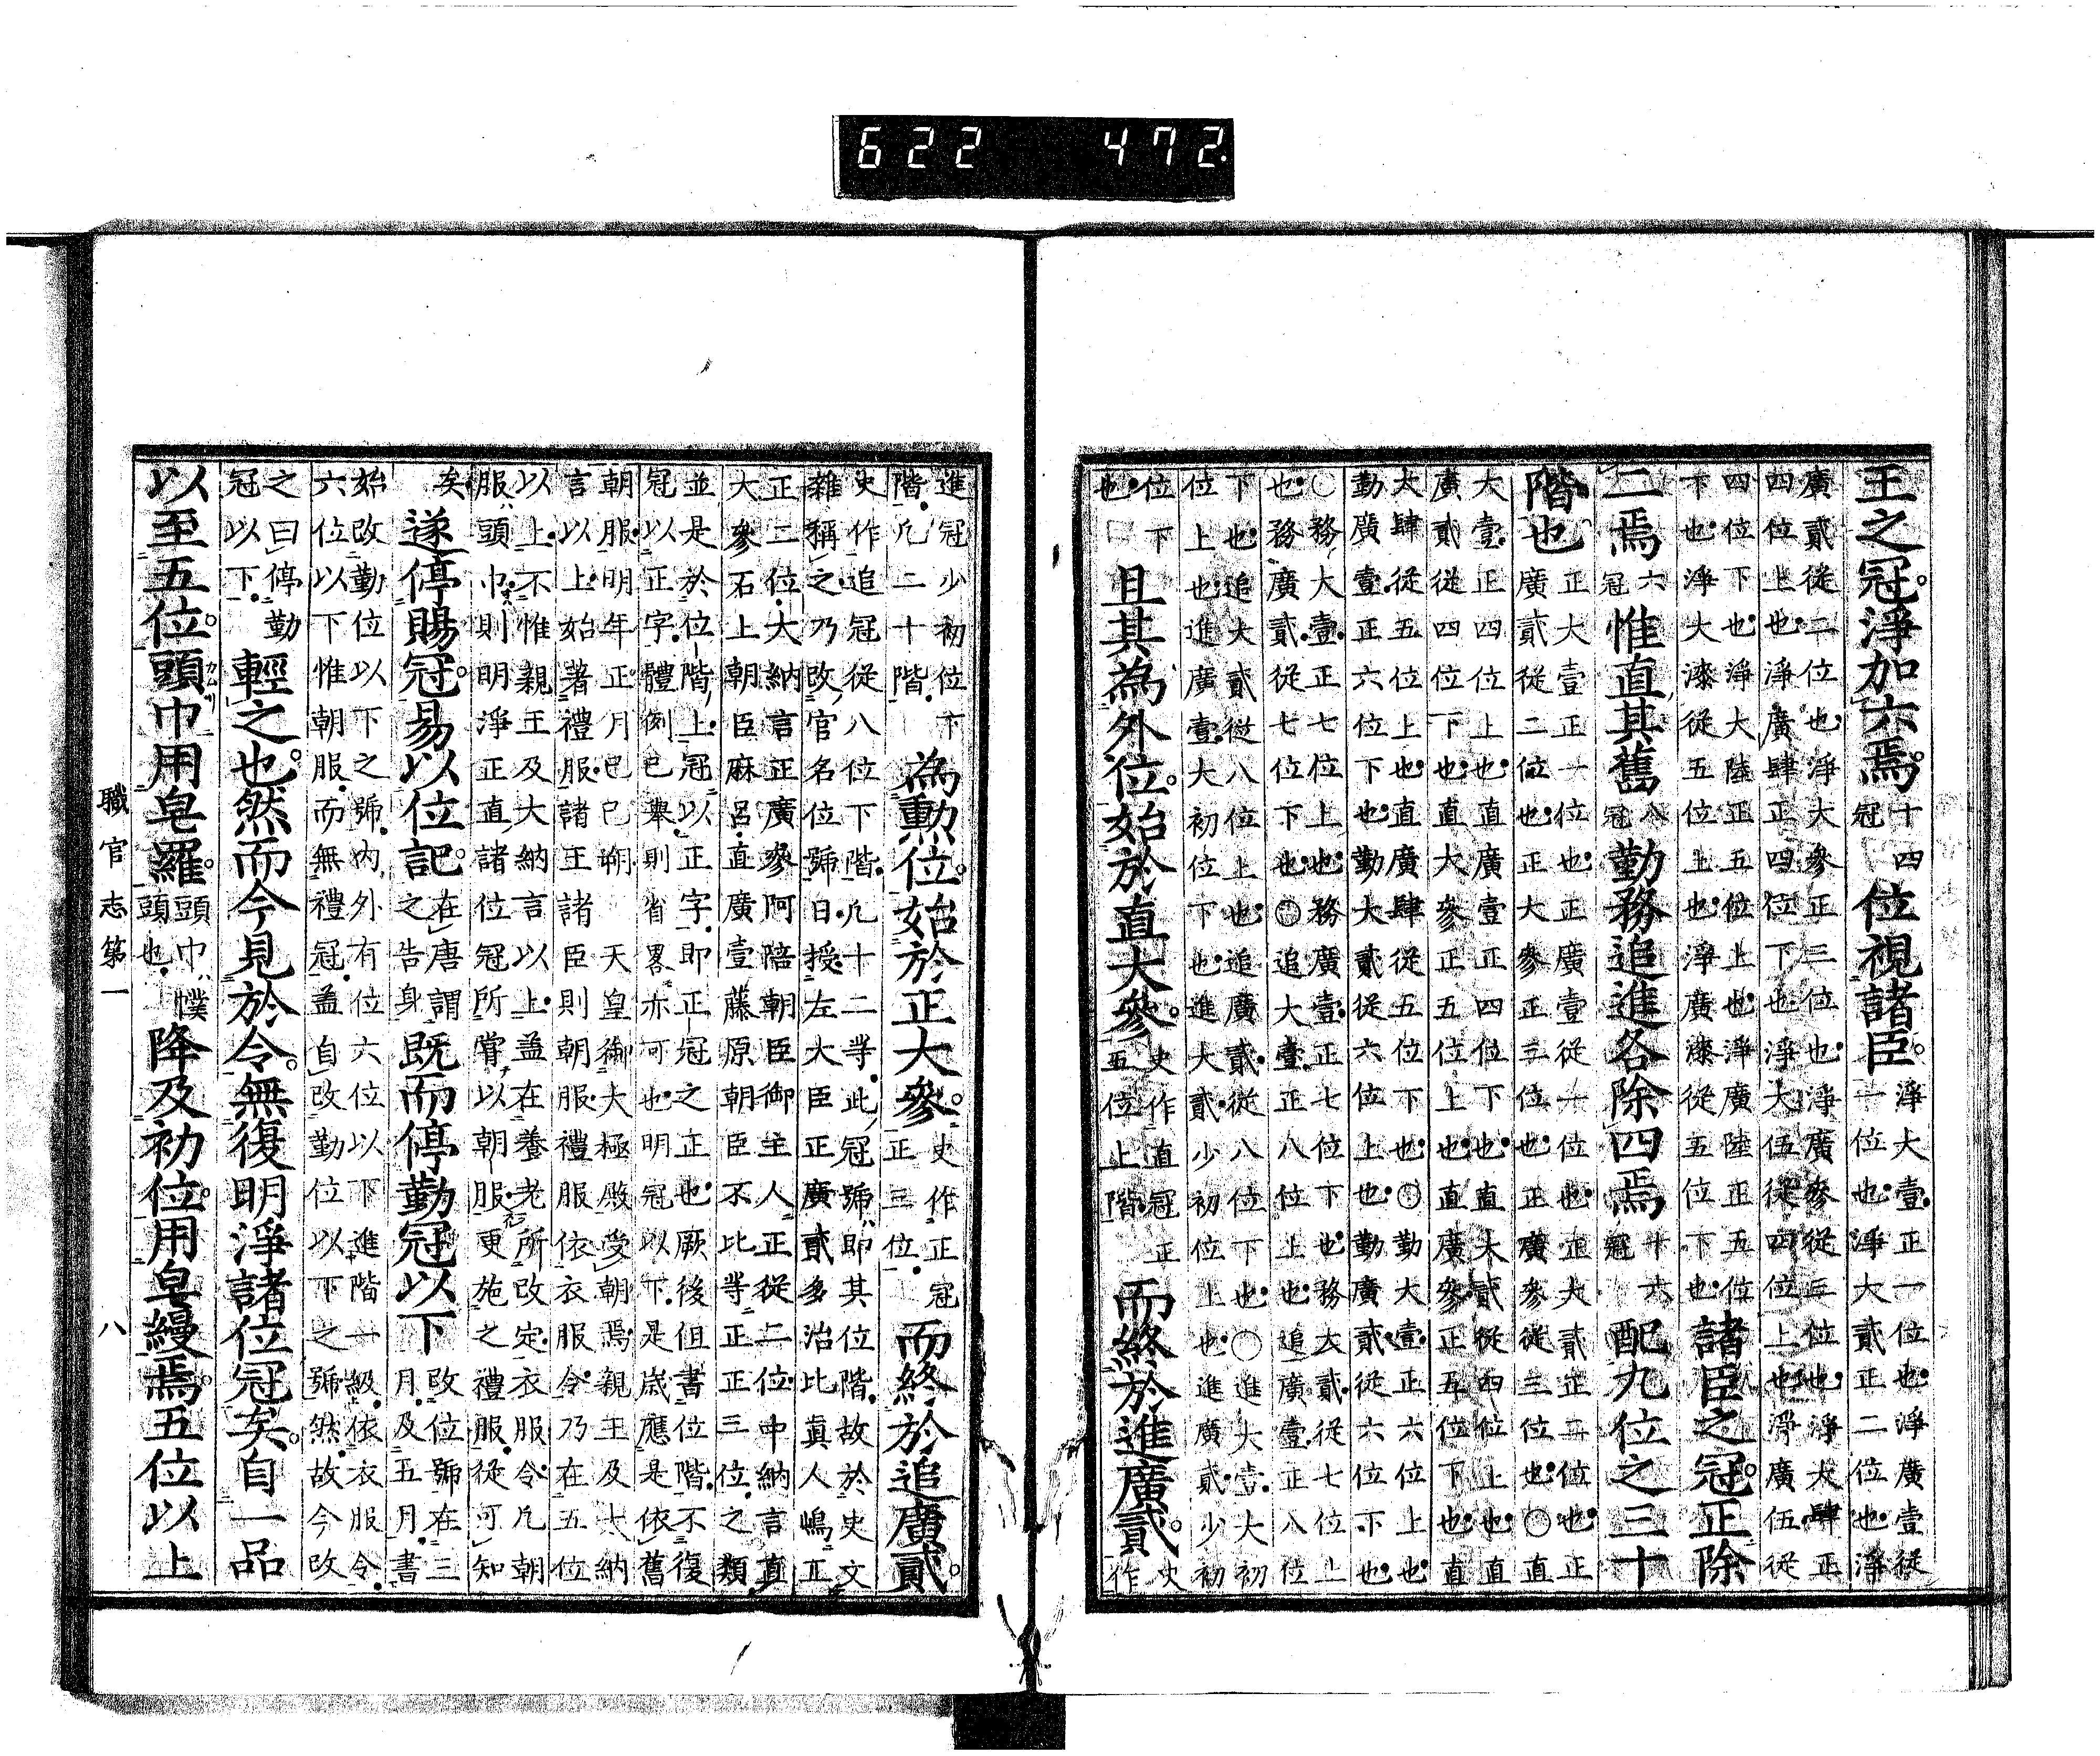 622 472.
王之冠。淨加六焉。十四冠位視諸臣。淨大壹正一位也淨廣壹從一位也淨大貳正二位也淨
廣貳從二位也淨大參正三位也淨廣參從三位也淨大肆正四位上也淨廣肆正四位下也淨大伍從四位上也淨廣伍從
四位下也淨大陸正五位上也淨廣陸正五位下也淨大漆從五位上也淨廣漆從五位下也諸臣之冠。正除
二焉六冠惟直其舊八冠勤務追進各除四焉十六冠配九位之三十
階也正大壹正一位也正廣壹從一位也正大貳正二位也正廣貳從二位也正大參正三位也正廣參從三位也〇直
大壹正四位上也直廣壹正四位下也直大貳從四位上也直廣貳從四位下也直大參正五位上也直廣參正五位下也直
大肆從五位上也直廣肆從五位下也〇勤大壹正六位上也勤廣壹正六位下也勤大貳從六位上也勤廣貳從六位下也
〇務大壹正七位上也務廣壹正七位下也務大貳從七位上也務廣貳從七位下也〇追大壹正八位上也追廣壹正八位
下也追大貳從八位上也追廣貳從八位下也〇進大壹大初位上也進廣壹大初位下也進大貳少初位上也進廣貳少初
位下也且其為外位。始於直大參。史作直冠正五位上階而終於進廣貳。史作
進冠少初位下階凡二十階為勲位。始於正大參。史作正冠正三位而終於追廣貳。
史作追冠從八位下階凡十二等此冠號即其位階故於史文雜稱之乃改官名位號曰授左大臣正廣貳多治比真人嶋正
正二位大納言正廣參阿陪朝臣御主人正從二位中納言直大參石上朝臣麻呂直廣壹藤原朝臣不比等正正三位之類
並是於位階上冠以正字即正冠之正也厥後但書位階不復冠以正字體例已舉則省畧亦可也明冠以下是歲應是依舊
朝服明年正月巳巳朔 天皇御大極殿受朝焉親王及大納言以上始著禮服諸王諸臣則朝服禮服依衣服令乃在五位
以上不惟親王及大納言以上盖在養老所改定衣服令凡朝服頭巾則明淨正直諸位冠所嘗以朝服更施之禮服從可知
矣遂停賜冠。易以位記。在唐謂之告身既而停勤冠以下改位號在三月及五月書
始改勤位以下之號內外有位六位以下進階一級依衣服令六位以下惟朝服而無禮冠盖自改勤位以下之號然故今改
之曰停勤冠以下輕之也。然而今見於令。無復明淨諸位冠矣。自一品
以至五位。頭巾用皂羅。頭巾幞頭也降及初位。用皂縵焉。五位以上
職官志第一 八